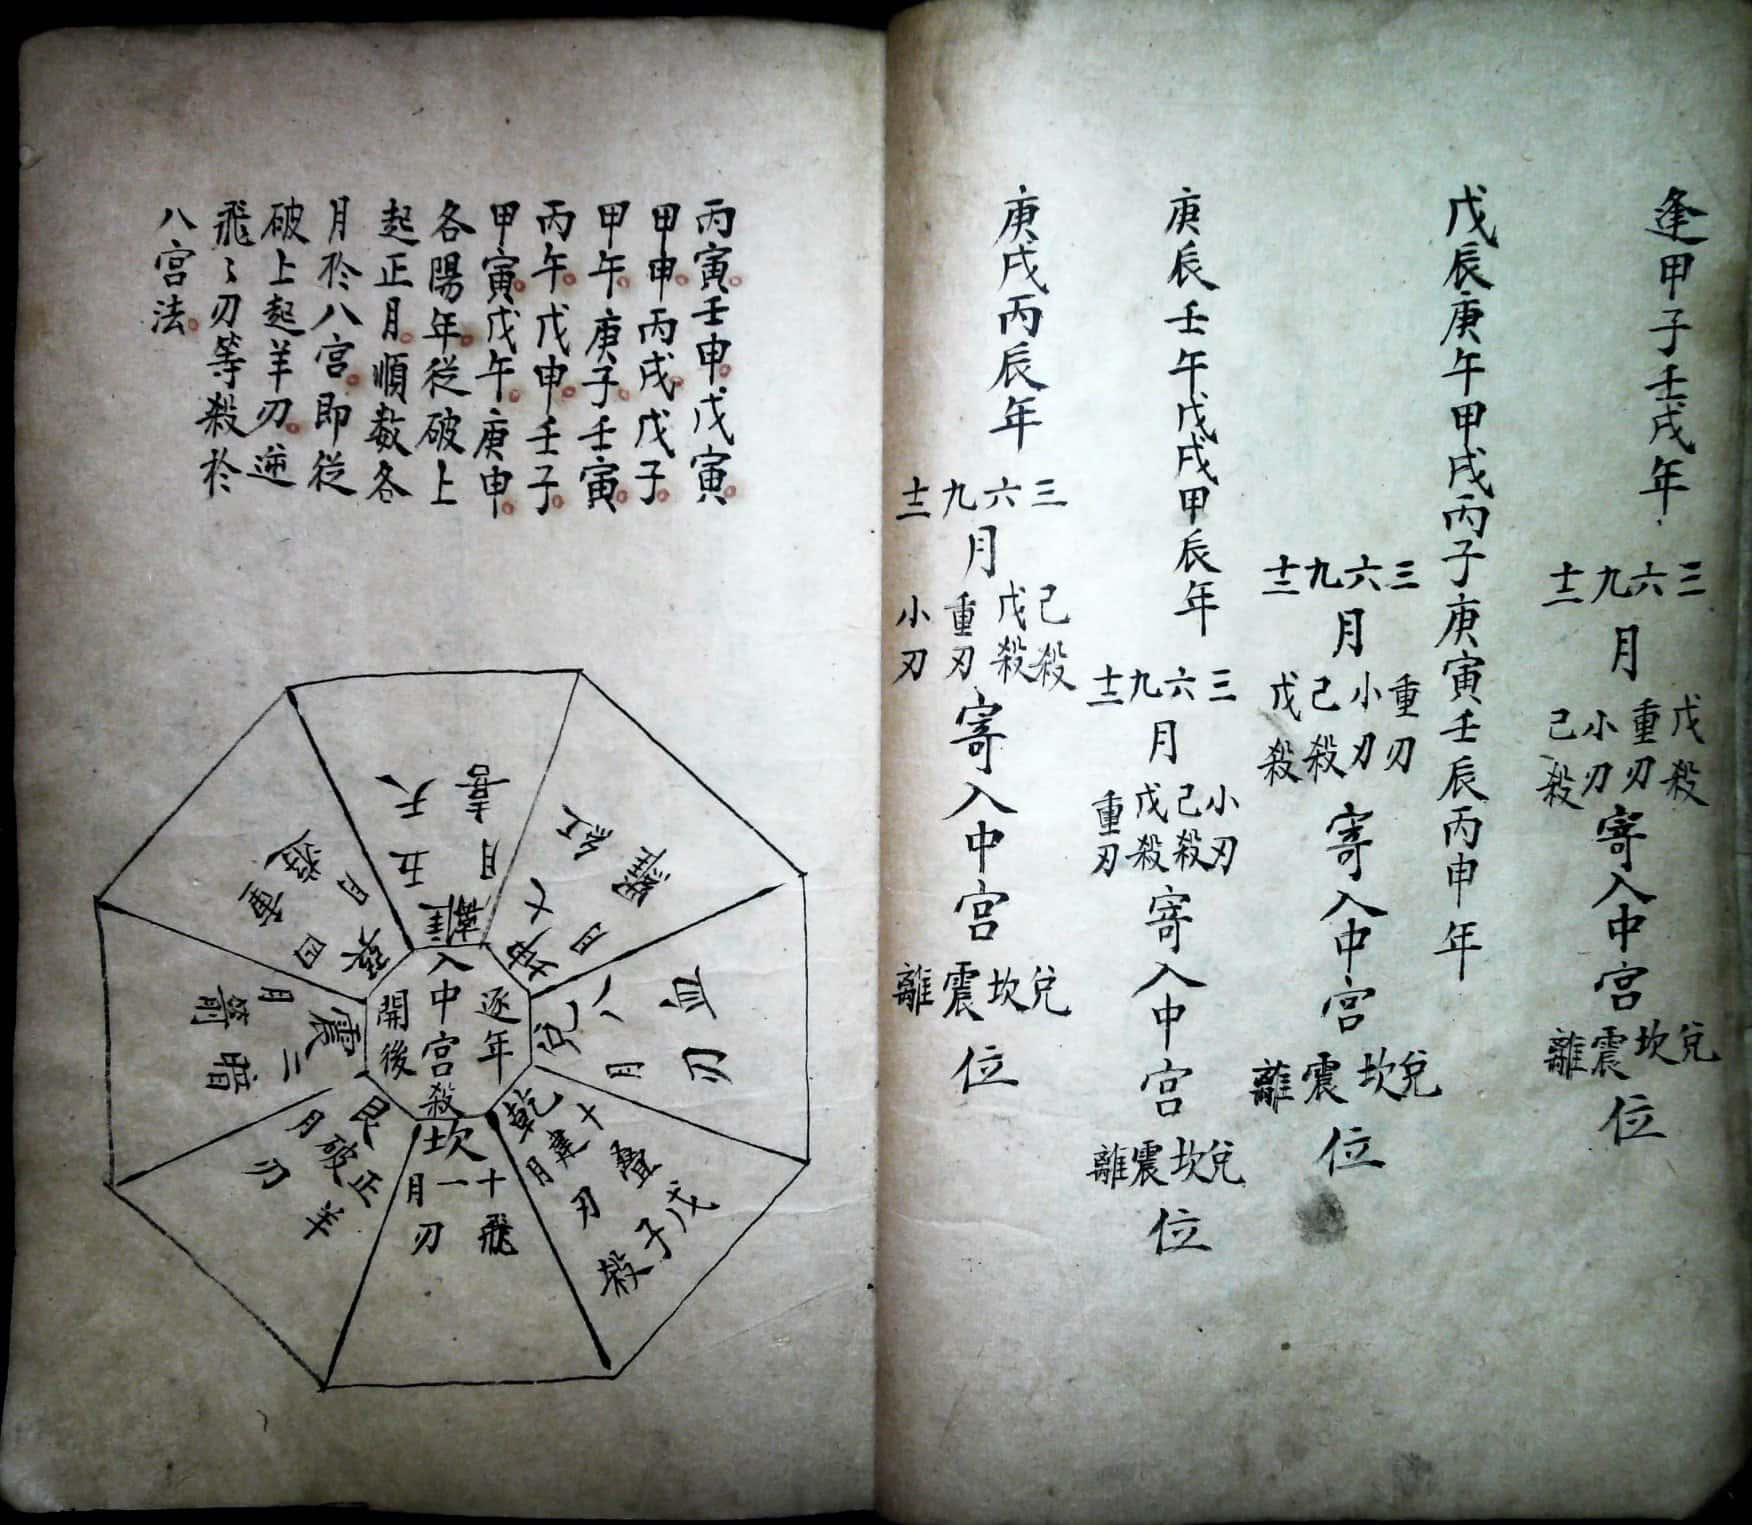 逢甲子壬戌年
三六九十二
月
戊殺重刃小刃己殺
寄入中宮
兌坎震離
位
戊辰庚午甲戌丙子庚寅壬辰丙申年
三六九十二
月
重刃小刃己殺戊殺
寄入中宮
兌坎震離
位
庚辰壬午戊戌甲辰年
三六九十二
月
小刃己殺戊殺重刃
寄入中宮
兌坎震離
位
庚戌丙辰年
三六九十二
月
己殺戊殺重刃小刃
寄入中宮
兌坎震離
位
丙寅壬申戊寅
甲申丙戌戊子
甲午庚子壬寅
丙午戊申壬子
甲寅戊午庚申
各陽年從破上
起正月順數各
月於八宮即從
破上起羊刃逆
飛〻刃等殺於
八宮法
逐年
入中宮殺
開後
離
五月
天喜
坤
七月
紅
兌
八月
血刃
乾
十月建
疊刃
戊子殺
坎
十一月
飛刃
艮
正月破
羊刃
震
二月
暗箭
巽
四月